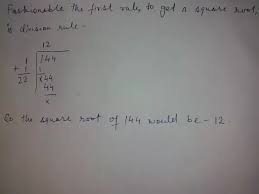 Fashionable the first rule, to get a square root,
is division rule -
12
1 | 144
+ 1 | 1
22 | x44
44
x
So the square root of 144 would be - 12.